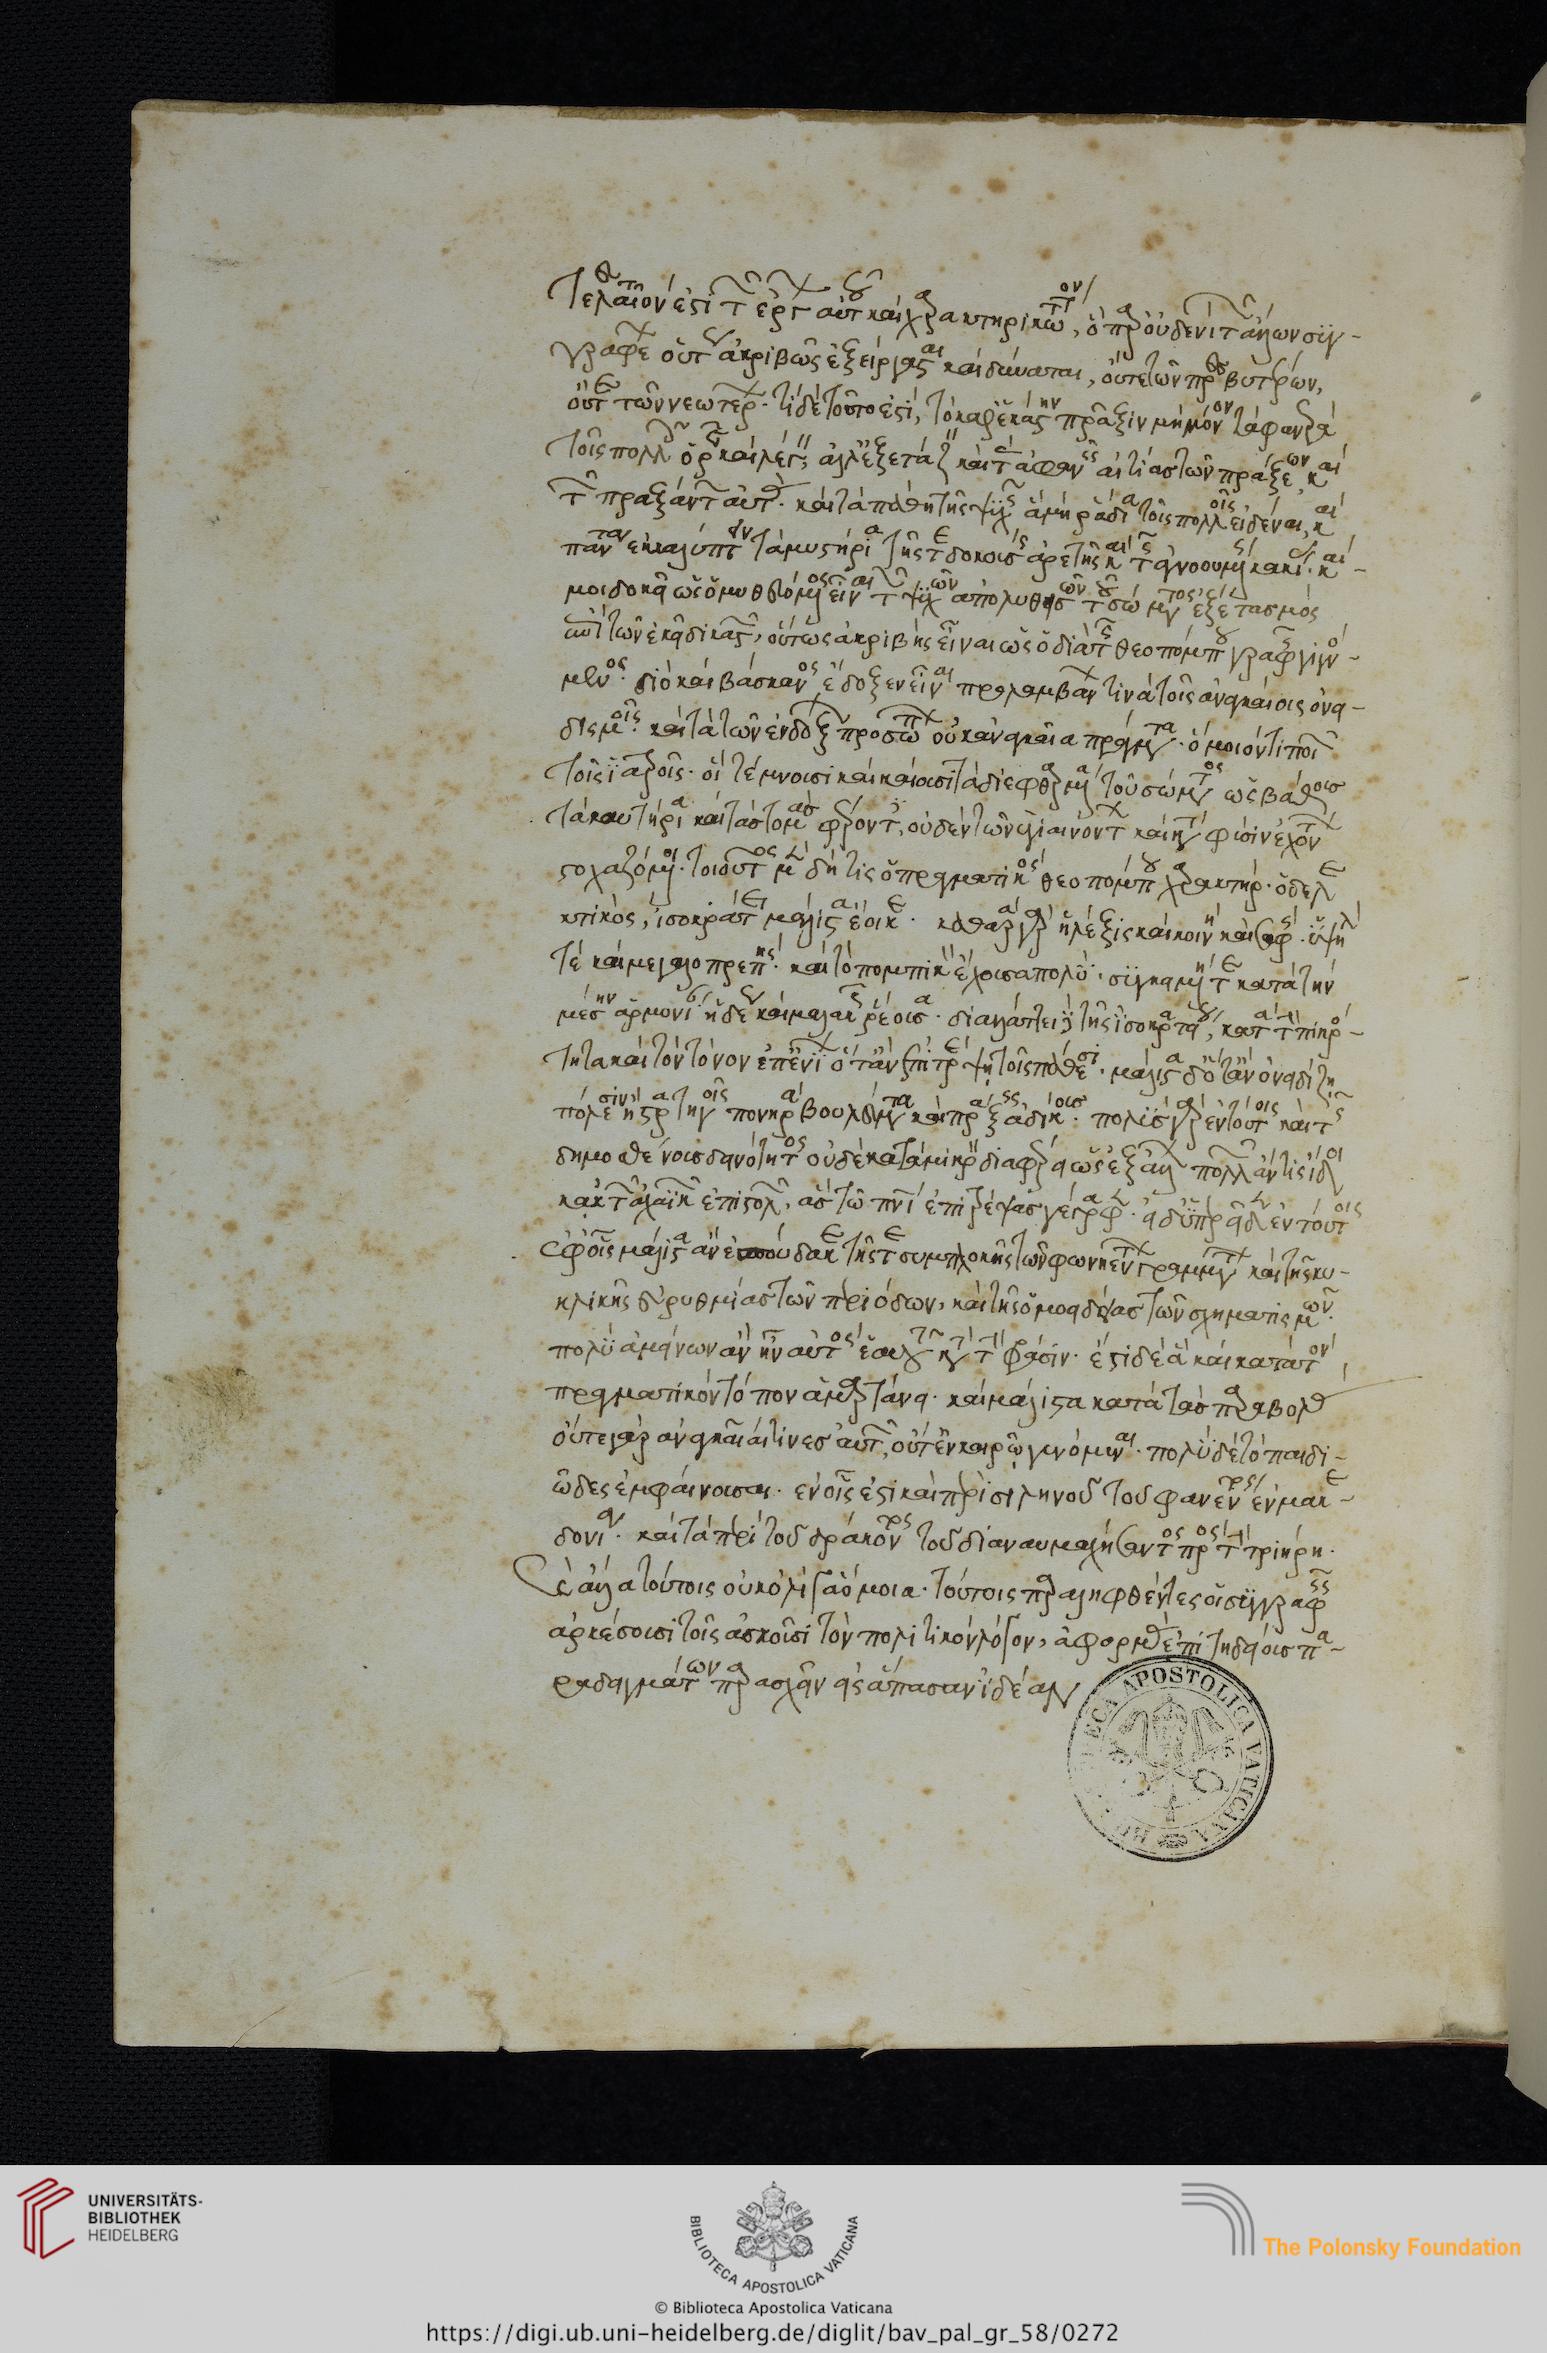 Τελευταῖον ἐστὶ τῶν ἔργων αὐτοῦ καὶ χαρακτηρικώτατον, ὃ παρ οὐδενὶ τῶν ἄλλων συγ-
γραφέων οὕτως ἀκριβῶς ἐξείργασται καὶ δύναται, οὔτε τῶν πρεσβυτέρων,
οὔτε τῶν νεωτέρων. τί δὲ τοῦτο ἐστί, τὸ καθ' ἑκάστην πρᾶξιν μὴ μόνον τὰ φανερὰ
τοῖς πολλοῖς ὁρᾶν καὶ λέγειν, ἀλλ' ἐξετάζειν καὶ τὰς ἀφανεῖς αἰτίας τῶν πράξεων, καὶ
τῶν πραξάντων αὐτὰς. καὶ τὰ πάθη τῆς ψυχῆς ἃ μὴ ῥάδια τοῖς πολλοῖς εἰδέναι, καὶ
πάντα ἐκκαλύπτειν τὰ μυστήρια τῆς τε δοκούσης ἀρετῆς καὶ τῆς ἀγνοουμένης κακίας. καί
μοι δοκεῖ πως ὁ μυθευόμενος εἶναι τῶν ψυχῶν ἀπολυθεισῶν τοῦ σώματος ἐξετασμός
ἐπὶ τῶν ἐκεῖ δικαστῶν, οὕτως ἀκριβὴς εἶναι ὡς ὁ διὰ τῆς θεοπόμπου γραφῆς γιγνό-
μενος. διὸ καὶ βάσκανος ἔδοξεν εἶναι προσλαμβάνων τινὰ τοῖς ἀναγκαίοις ὀνει-
δισμοῖς. καὶ τὰ τῶν ἐνδόξων προσώπων οὐκ ἀναγκαῖα πράγματα. ὅμοιόν τι ποιῶν
τοῖς ἰατροῖς. οἳ τέμνουσι καὶ καίουσι τὰ διεφθαρμένα τοῦ σώματος ὡς βάθους
τὰ καυτήρια καὶ τὰς τομὰς φέροντες, οὐδὲν τῶν ὑγιαινόντων καὶ κατὰ φύσιν ἐχόντων
στοχαζόμενοι. τοιοῦτος μὲν δή τις ὁ πραγματικὸς θεοπόμπου χαρακτήρ. ὁ δὲ λε-
κτικὸς, ἰσοκράτει μάλιστα ἔοικε. καθαρὰ γὰρ ἡ λέξις καὶ κοινὴ καὶ σαφής. ὑψηλή
τε καὶ μεγαλοπρεπὴς. καὶ τὸ πομπικὸν ἔχουσα πολύ. συγκειμένη τε κατὰ τὴν
μέσην ἁρμονίαν. ἡδέως καὶ μαλακῶς ῥέουσα. διαλάττει δὲ τῆς ἰσοκράτους, κατὰ τὴν πικρό-
τητα καὶ τὸν τόνον ἐπ' ἐνίων ὅταν ἐπιτρέψῃ τοῖς πάθεσι. μάλιστα δ' ὅταν ὀνειδίζῃ
πόλεσιν ἢ στρατηγοῖς πονηρὰ βουλεύματα καὶ πράξεις ἀδίκους. πολὺς γὰρ ἐν τούτοις καὶ τῆς
δημοσθένους δεινότητος οὐδὲ κατὰ μικρὸν διαφέρει ὡς ἐξ ἄλλων πολλῶν ἄν τις ἴδοι
κἀκ τῶν ἀρχαϊκῶν ἐπιστολῶν, ἃς τῷ πνεύματι ἐπιτρέψας γέγραφεν. εἰ δ' ὑπερεῖδεν ἐν τούτοις
ἐφ' οἷς μάλιστα ἂν ἐσπούδακε τῆς τε συμπλοκῆς τῶν φωνηέντων γραμμάτων καὶ τῆς κυ-
κλικῆς εὐρυθμίας τῶν περιόδων, καὶ τῆς ὁμοειδείας τῶν σχηματισμῶν.
πολὺ ἀμείνων ἂν ἦν αὐτὸς ἑαυτοῦ κατὰ τὴν φράσιν. ἔστι δὲ ἃ καὶ κατὰ τὸν
πραγματικὸν τόπον ἁμαρτάνει. καὶ μάλιστα κατὰ τὰς παραβολὰς
οὔτε γὰρ ἀναγκαῖαί τινες αὐτῶν, οὔτ' ἐν καιρῷ γινόμεναι. πολὺ δὲ τὸ παιδι-
ῶδες ἐμφαίνουσαι. ἐν οἷς ἐστὶ καὶ περὶ σιληνοῦ τοῦ φανέντος ἐν μακε-
δονίᾳ. καὶ τὰ περὶ τοῦ δράκοντος τοῦ διαναυμαχήσαντος πρὸς τὴν τριήρη.
καὶ ἄλλα τούτοις οὐκ ὀλίγα ὅμοια. τούτοις παραληφθέντες οἱ συγγραφεῖς
ἀρκέσουσι τοῖς ἀσκοῦσι τὸν πολιτικὸν λόγον, ἀφορμὰς ἐπιτηδείους πα-
ραδειγμάτων παρασχεῖν εἰς ἅπασαν ἰδέαν
BIBLIOTECA APOSTOLICA VATICANA
UNIVERSITÄTS-
BIBLIOTHEK
HEIDELBERG
BIBLIOTECA APOSTOLICA VATICANA
The Polonsky Foundation
© Biblioteca Apostolica Vaticana
https://digi.ub.uni-heidelberg.de/diglit/bav_pal_gr_58/0272